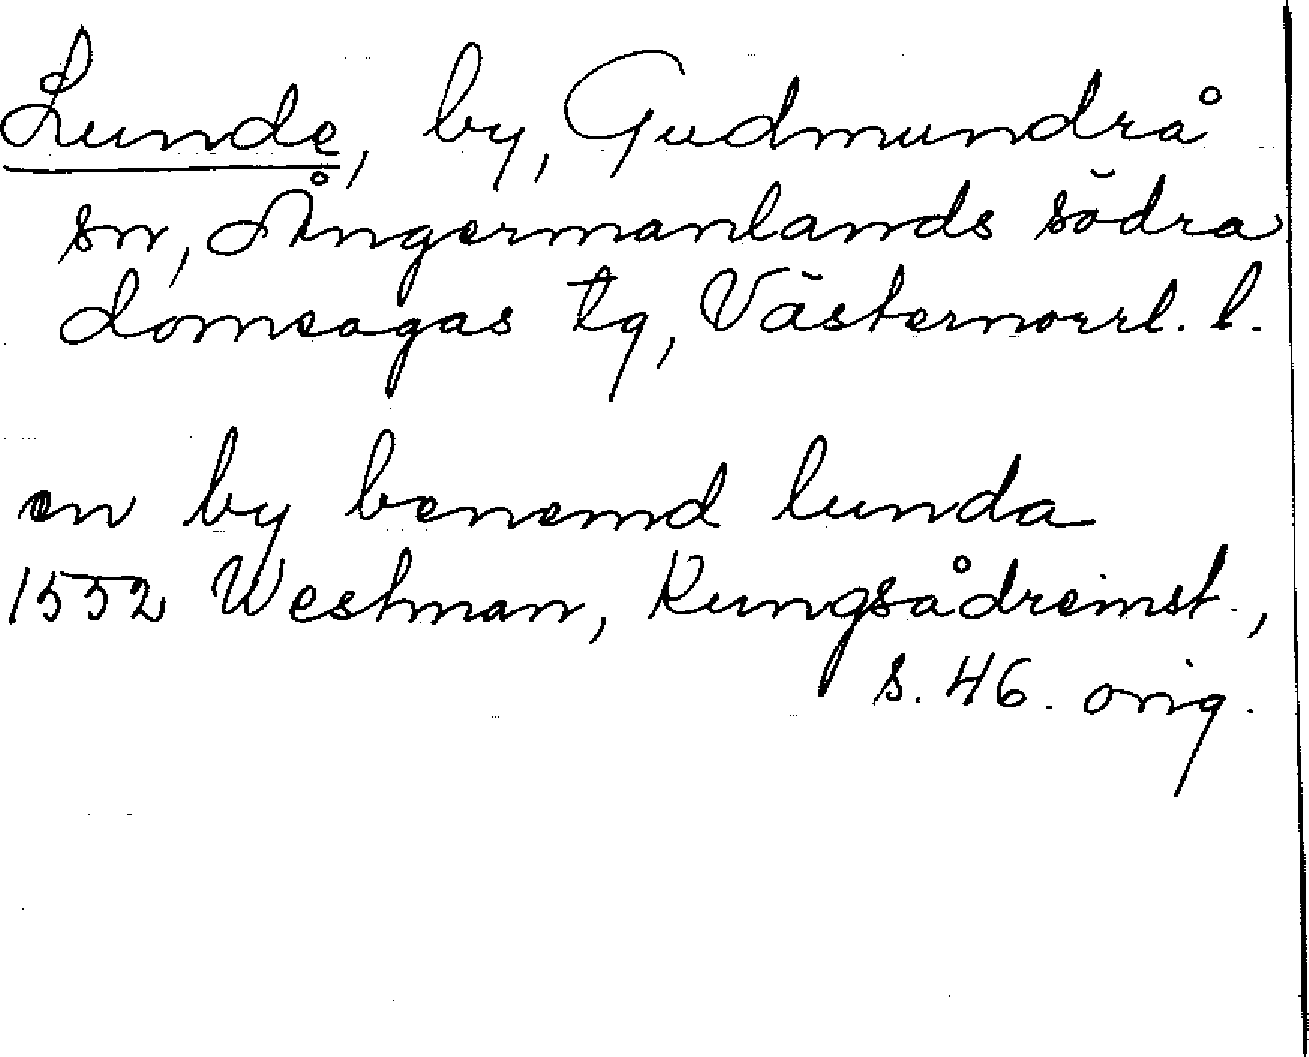 Lunde, by, Gudmundrå
sn, Ångermanlands södra
domsagas tg, Västernorrl. l.
en by benemd lunda
1552 Westman, Kungsådreinst.,
s. 46. orig.